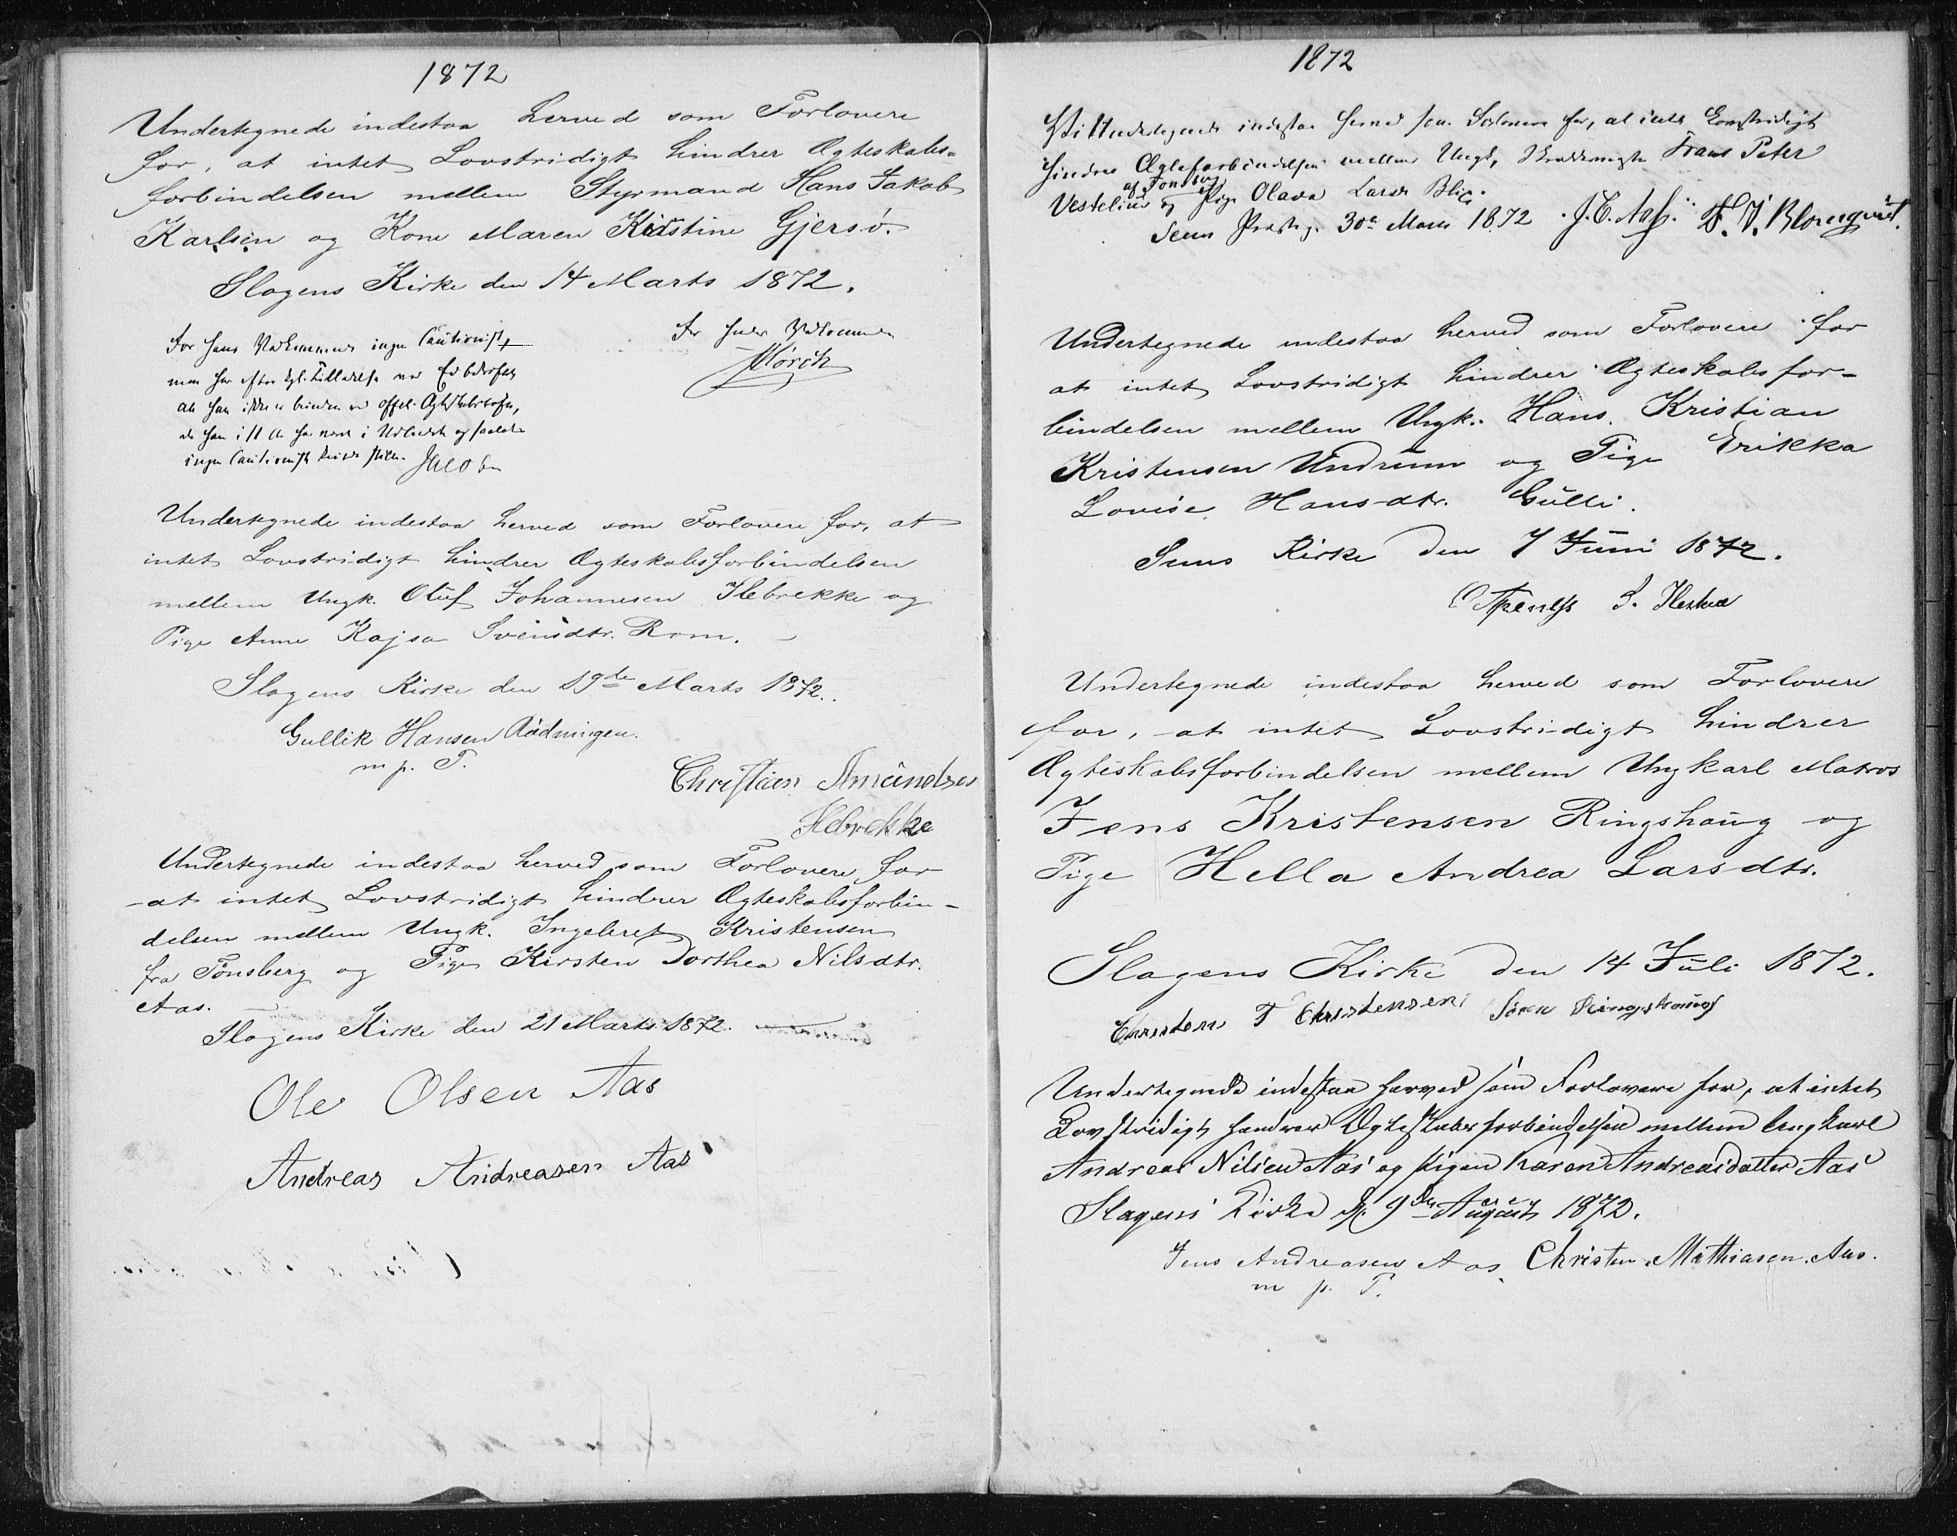 1872
Undertegnede indestaa herved som Forlovere
for, at intet Lovstridigt hindrer Ægteskabs-
forbindelsen mellem Styrmand Hans Jakob
Karlsen og Kone Maren Kirstine Gjersø.
Slagens Kirke den 14 Marts 1872.
For hans Vedkommende ingen Cautionist,
men har efter
at han ikke er bunden ved
at han i 11 Aar har været i Udlandet og
ingen Cautionist kunde stille. Jacobsen
For hendes Vedkommende
Mørch
Undertegnede indestaa herved som Forlovere for, at
intet Lovstridigt hindrer Ægteskabsforbindelsen
mellem Ungk. Oluf Johannesen Ilebrekke og
Pige Anne Kajsa Svensdtr. Rom.
Slagens Kirke den 19de Marts 1872.
Gullik Hansen Rødningen.
m. p. P.
Christian Amundsen
Ilebrekke
Undertegnede indestaa herved som Forlovere for
at intet Lovstridigt hindrer Ægteskabsforbin-
delsen mellem Ungk. Ingebret Kristensen
fra Tønsberg og Pige Kirsten Dorthea Nilsdtr.
Aas.
Slagens Kirke den 21 Marts 1872.
Ole Olsen Aas
Andreas Andreasen Aas
1872
Vi Undertegnede indestaa herved som Forlovere for, at intet Lovstridigt
hindrer Ægteforbindelsen mellem Ungk, Frans Peter
Vestelius af Tønsberg og Pige Olava Larsd.
Sems Præstg. 30te Marts 1872. J. C. F. V. Blomqvist.
Undertegnede indestaa herved som Forlovere for
at intet Lovstridigt hindrer Ægteskabsfor-
bindelsen mellem Ungk. Hans Kristian
Kristensen Undrum og Pige Erikka
Lovise Hansdtr. Gulli.
Sems Kirke den 7 Juni 1872.
S.
Undertegnede indestaa herved som Forlovere
for, at intet Lovstridigt hindrer
Ægteskabsforbindelsen mellem Ungkarl Matros
Jens Kristensen Ringshaug og
Pige Hella Andrea Larsdtr.
Slagens Kirke den 14 Juli 1872.
Christen T Christensen Søren Ringshaug
Undertegnede indestaa herved som Forlovere for, at intet
Lovstridigt hindrer Ægteskabsforbindelsen mellem Ungkarl
Andreas Nilsen Aas og Pigen Karen Andreasdatter Aas
Slagens Kirke d. 9de August 1872.
Jens Andreasen Aas Christen Mathiasen Aas.
m p. P.